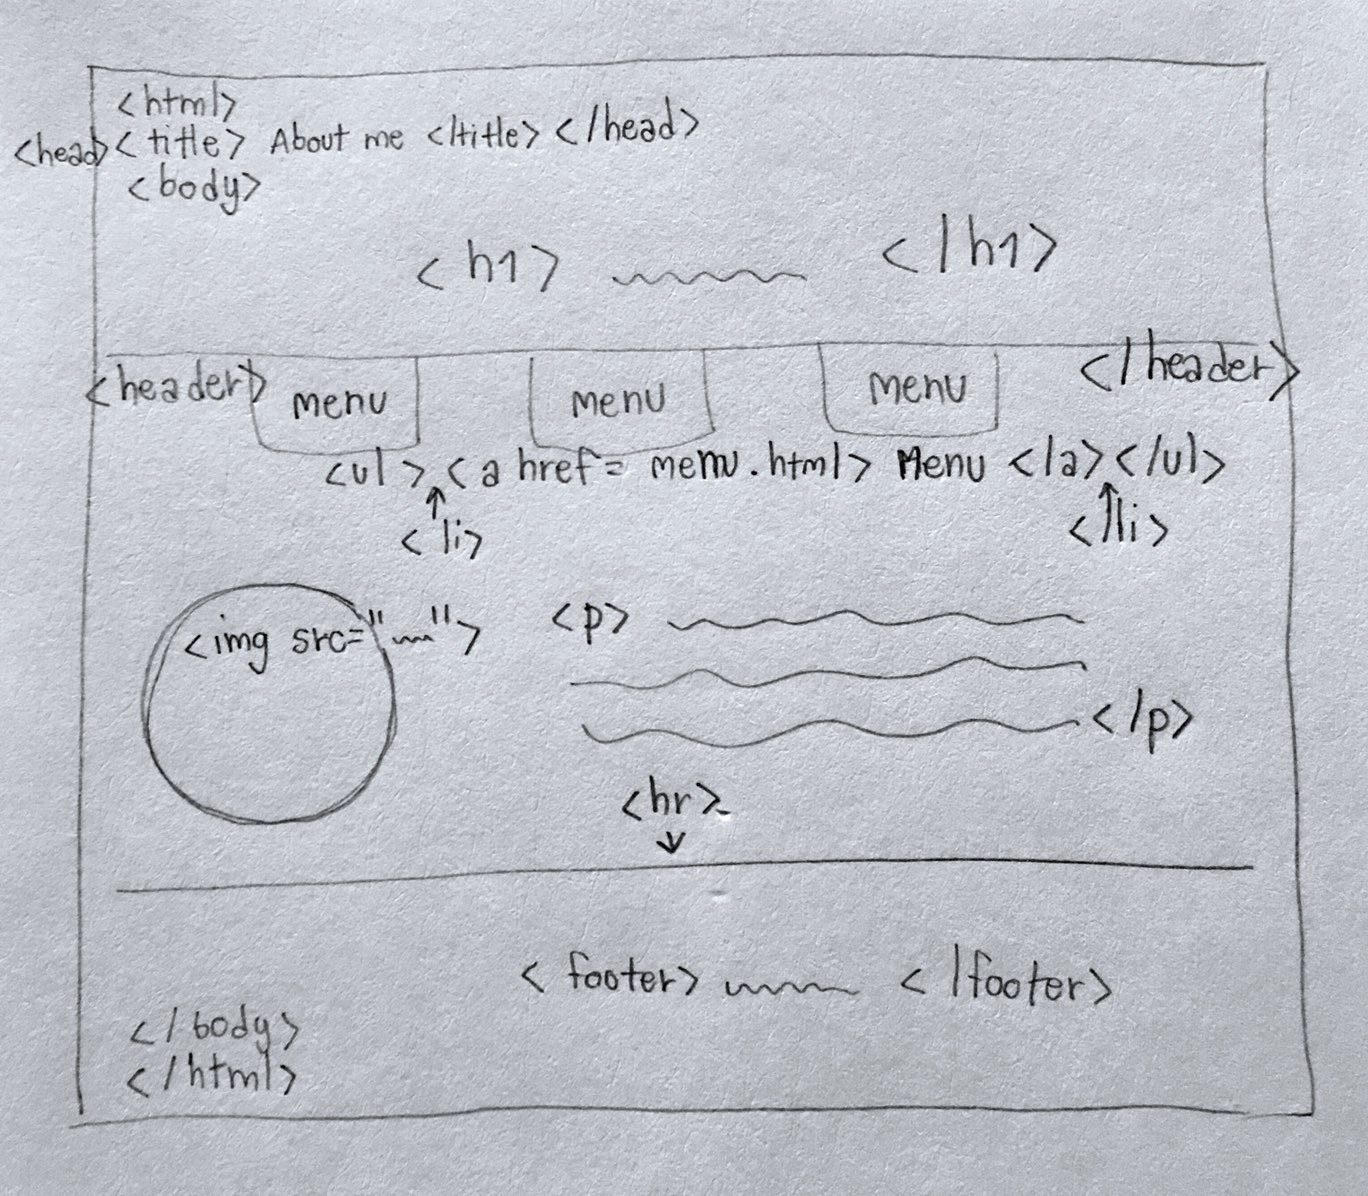 <html>
<head><title> About me </title></head>
<body>
<h1> </h1>
<header> menu menu menu </header>
<ul><a href= menu.html> Menu </a></ul>
<li> </li>
<img src=" "> <p>
</p>
<hr>
<footer> </footer>
</body>
</html>